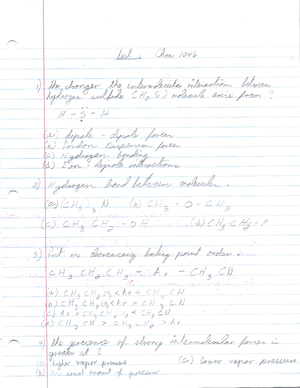 Chm 1046
1) The stronger the intermolecular interaction between
hydrogen sulfide (H2S) molecule arise from?
H - S - H
(a) dipole - dipole forces
(b) London dispersion forces
(c) Hydrogen bonding
(d) Ion - dipole interactions
2) Hydrogen bond between molecules
(a) (CH3)3 N (b) CH3 - O - CH3
(c) CH3 CH2 - OH (d) CH3 CH2 - F
3) list in decreasing boiling point order
CH3 CH2 CH3 - Ar - CH3 CN
(a) CH3 CH2 CH3 < Ar < CH3 CN
(b) CH3 CH2 CH3 < Ar > CH3 CN
(c) Ar > CH3 CH2 CH3 < CH3 CN
(d) CH3 CN > CH3 CH2 CH3 > Ar
4) the presence of strong intermolecular forces is
greater at
higher vapor pressure (C) lower vapor pressure
(B) amount of pressure